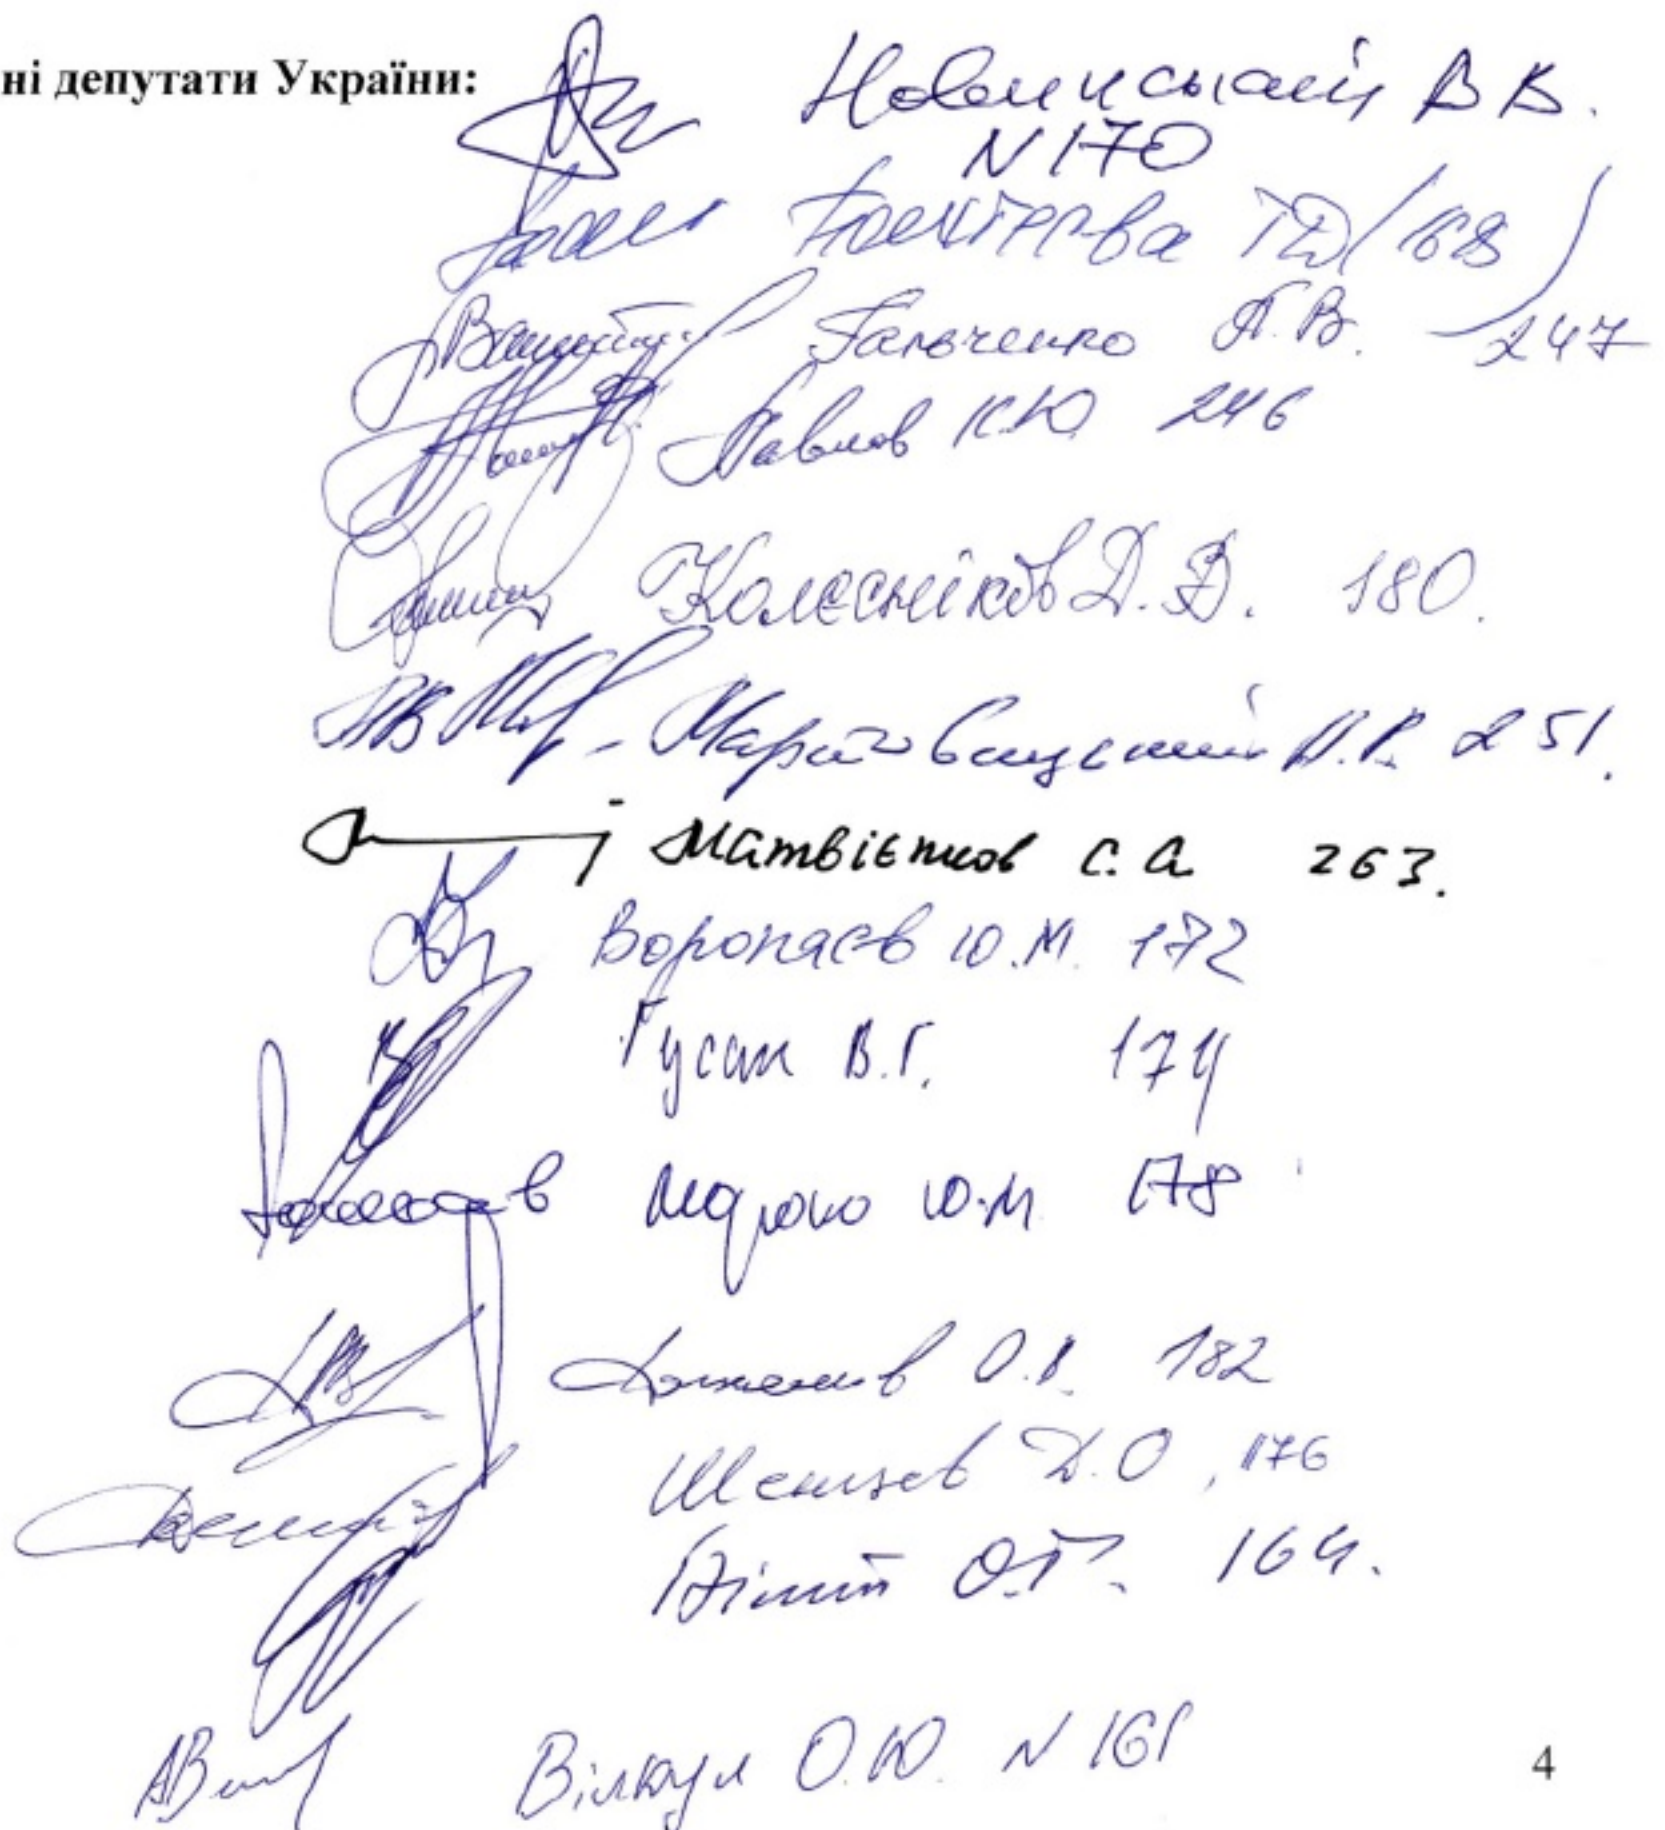 ні депутати України:
Новинський В В.
N 170
Бахтеєва Т Д / 168 /
Гальченко А. В. 247
Павлов К.Ю 246
Колєсніков Д. В. 180.
Мартовицький А.В. 251.
Матвієнков С. А. 263.
Воропаєв Ю.М. 172
Гусак В.Г. 174
Ю.М. 178
Долженков О.В. 182
Шенцев Д.О, 176
Білий О.Г. 164.
Вілкул О.Ю. N 161
4